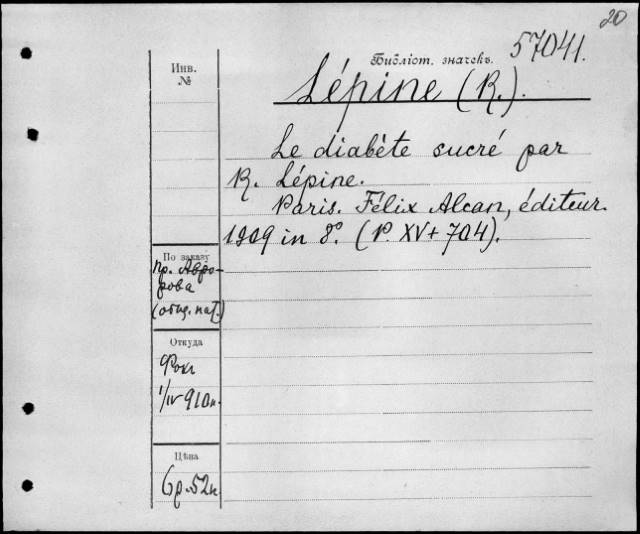 20
57041.
Библіот. значекъ.
Инв.
№
Lépine (R.).
Le diabète sucré par
R. Lépine.
Paris. Félix Alcan, éditeur.
1909 in 8°. (P. XV + 704).
По заказу
пр. Авро-
рова
(общ. пат.)
Откуда
1/IV 910 г.
Цѣна
6 р. 52 к